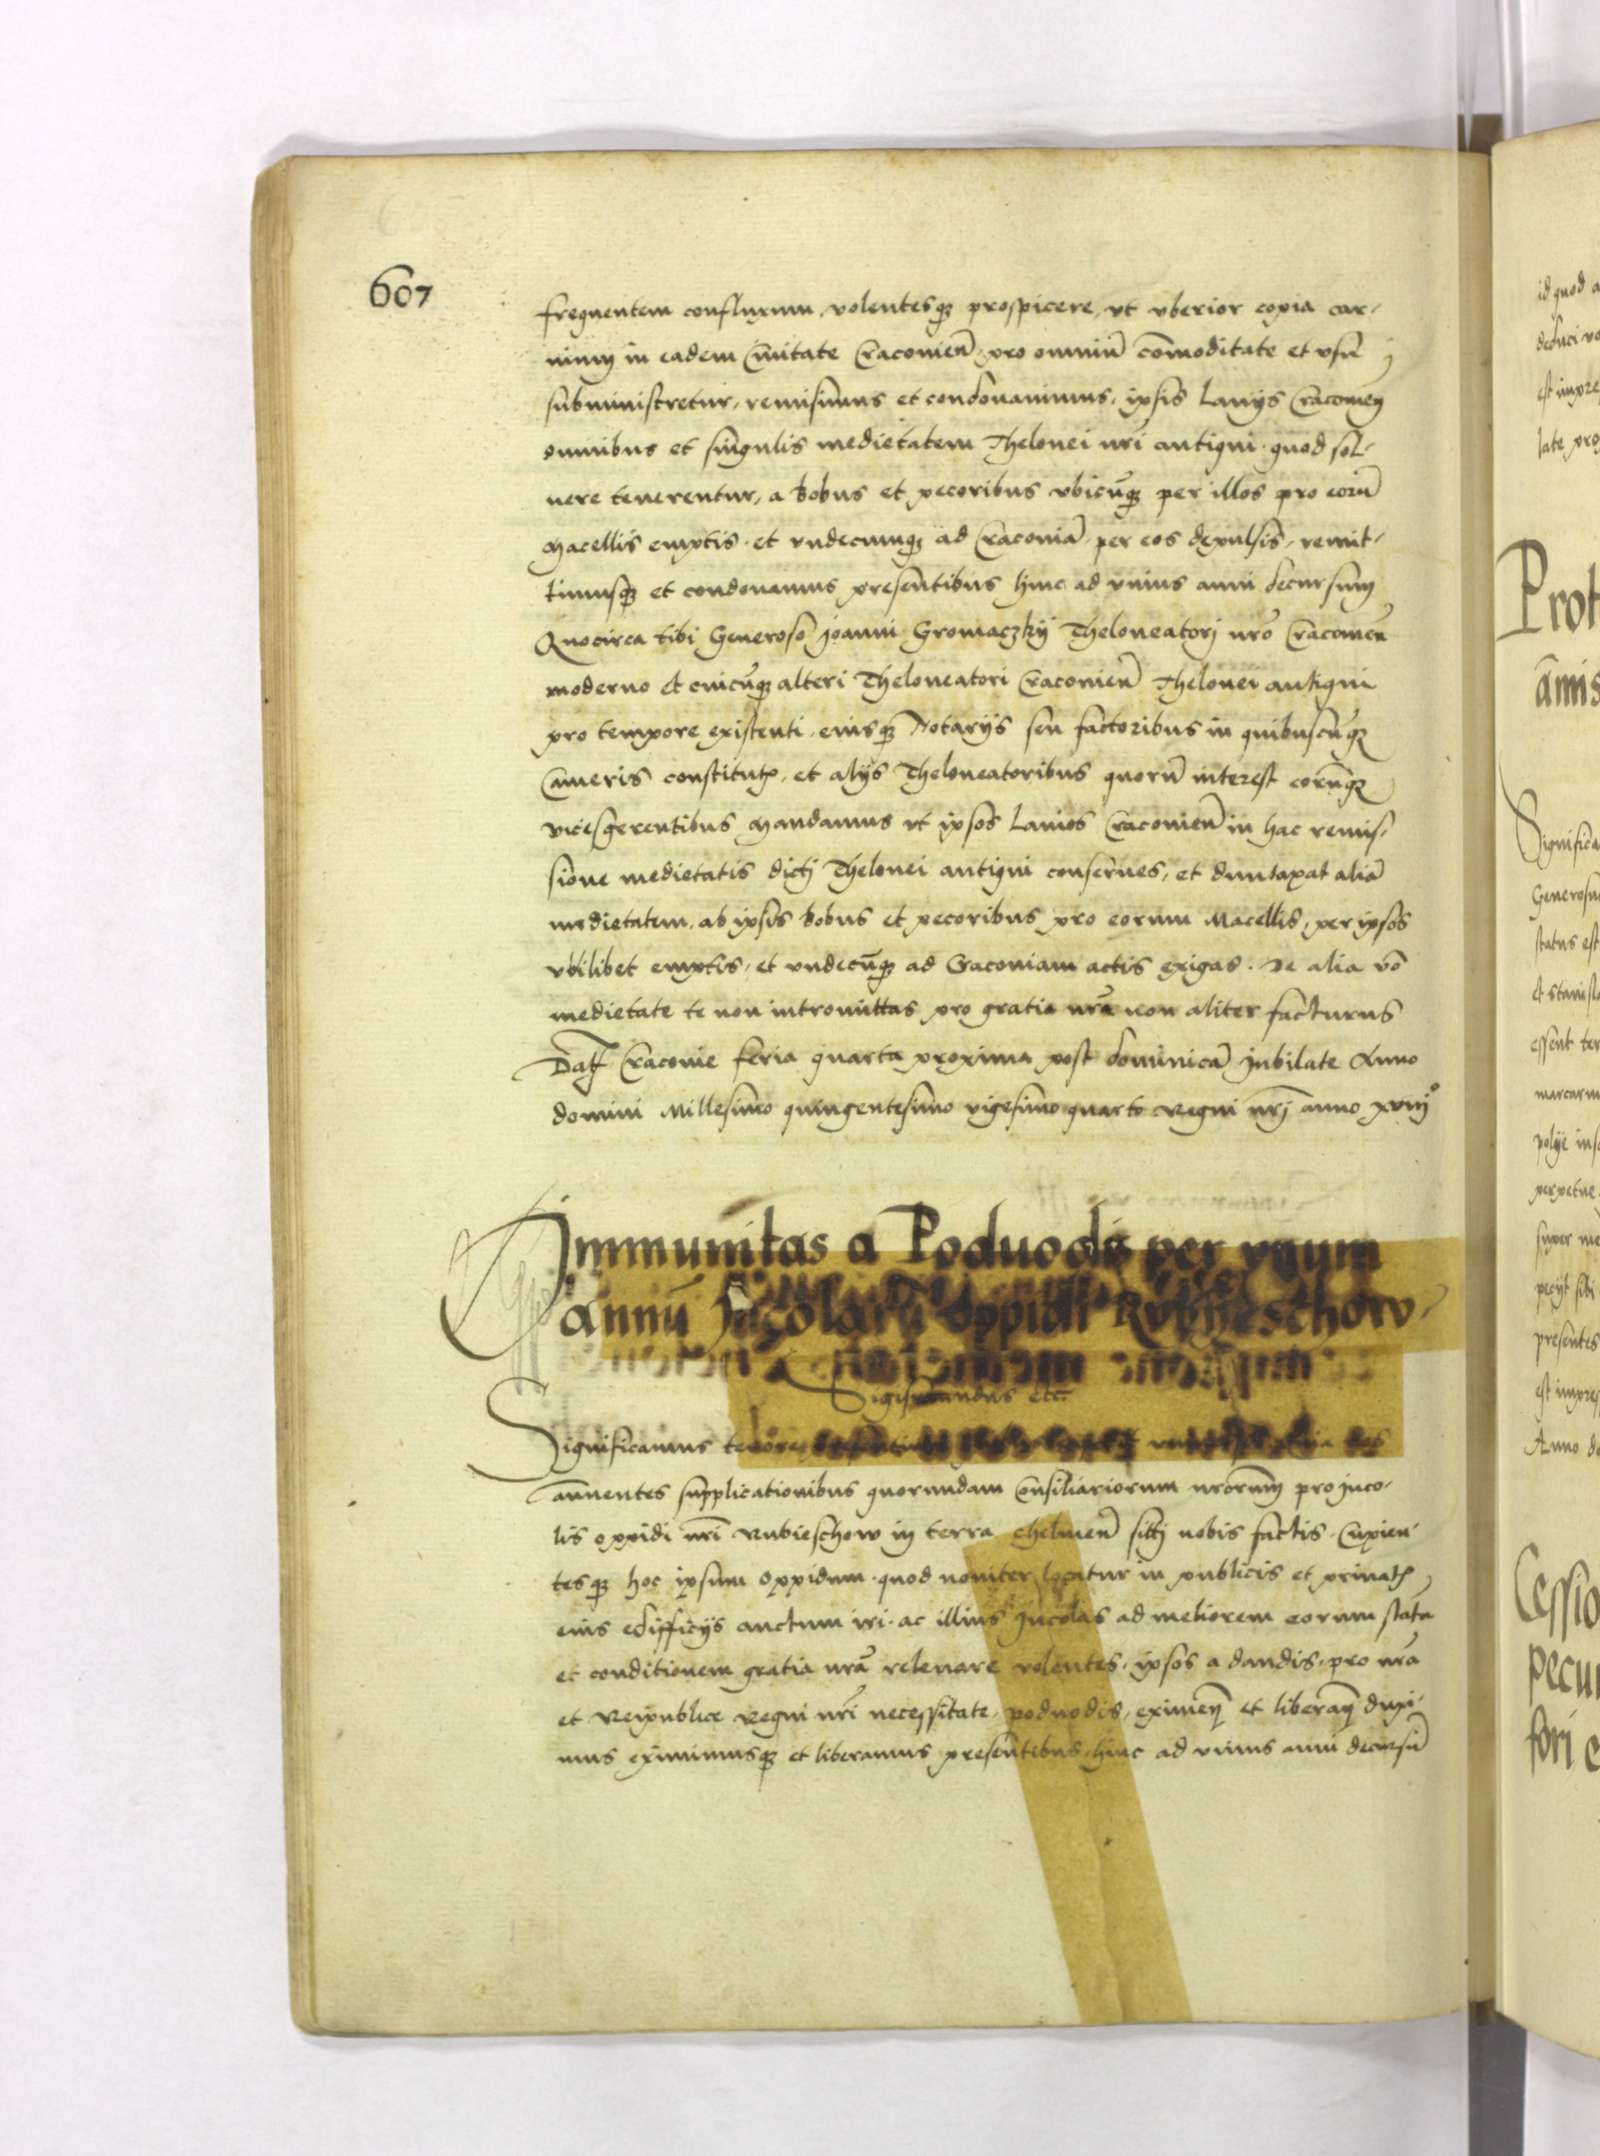 607
frequentem confluxum, volentesq₃ prospicere, vt vberior copia car-
nium in eadem Ciuitate Cracovien̄ pro omniū cōmoditate et vsū
subministretur, remisimus et condonauimus, ipsis Lanijs Cracovień
omnibus et singulis medietatem Thelonei nr̄i antiqui quod sol-
uere tenerentur, a bobus et pecoribus vbicūq₃ per illos pro eorū
Macellis emptis et vndecumq₃ ad Cracouiā per eos depulsis, remit-
timusq₃ et condonamus presentibus hinc ad vnius anni decursum
Quocirca tibi Generoso Joanni Gromaczkij Theloneatorj nr̄o Cracouień
moderno et cuicūq₃ alteri Theloneatori Cracouień Thelonei antiqui
pro tempore existenti, eiusq₃ Notarijs seu factoribus in quibuscūq₃
Cameris constitut᷒, et alijs Theloneatoribus quorū interest eorūq₃
vicesgerentibus Mandamus vt ipsos Lanios Cracouień in hac remis-
sione medietatis dictj Thelonei antiqui conserues, et duntaxat aliā
medietatem, ab ipsis bobus et pecoribus pro eorum Macellis, per ipsos
vbilibet emptis, et vndecūq₃ ad Cracouiam actis exigas. De alia vō
medietate te non intromittas pro gratia nr̄a non aliter facturus
Dat̄ Cracouie feria quarta proxima post dominicā Jubilate Anno
domini Millesimo quingentesimo vigesimo quarto Regni nr̄j anno xviij°
Immunitas a Poduodis per vnum
annū Incolarū oppidi Rvbyeschow
Sigismundus etc.
Significamus tenore
annuentes supplicationibus quorundam Consiliariorum nr̄orum pro Inco-
lis oppidi nr̄i Rubieschow in terra chelmeń sitj nobis factis, Cupien-
tesq₃ hoc ipsum oppidum quod nouiter locatur in publicis et priuat᷒
eius edifficijs auctum iri, ac illius Incolas ad meliorem eorum statū
et conditionem gratia nr̄a releuare volentes, ipsos a dandis, pro nr̄a
et Reipublice Regni nr̄i necessitate, poduodis, eximen̄ et liberan̄ duxi-
mus eximimusq₃ et liberamus presentibus hinc ad vnius anni decursū